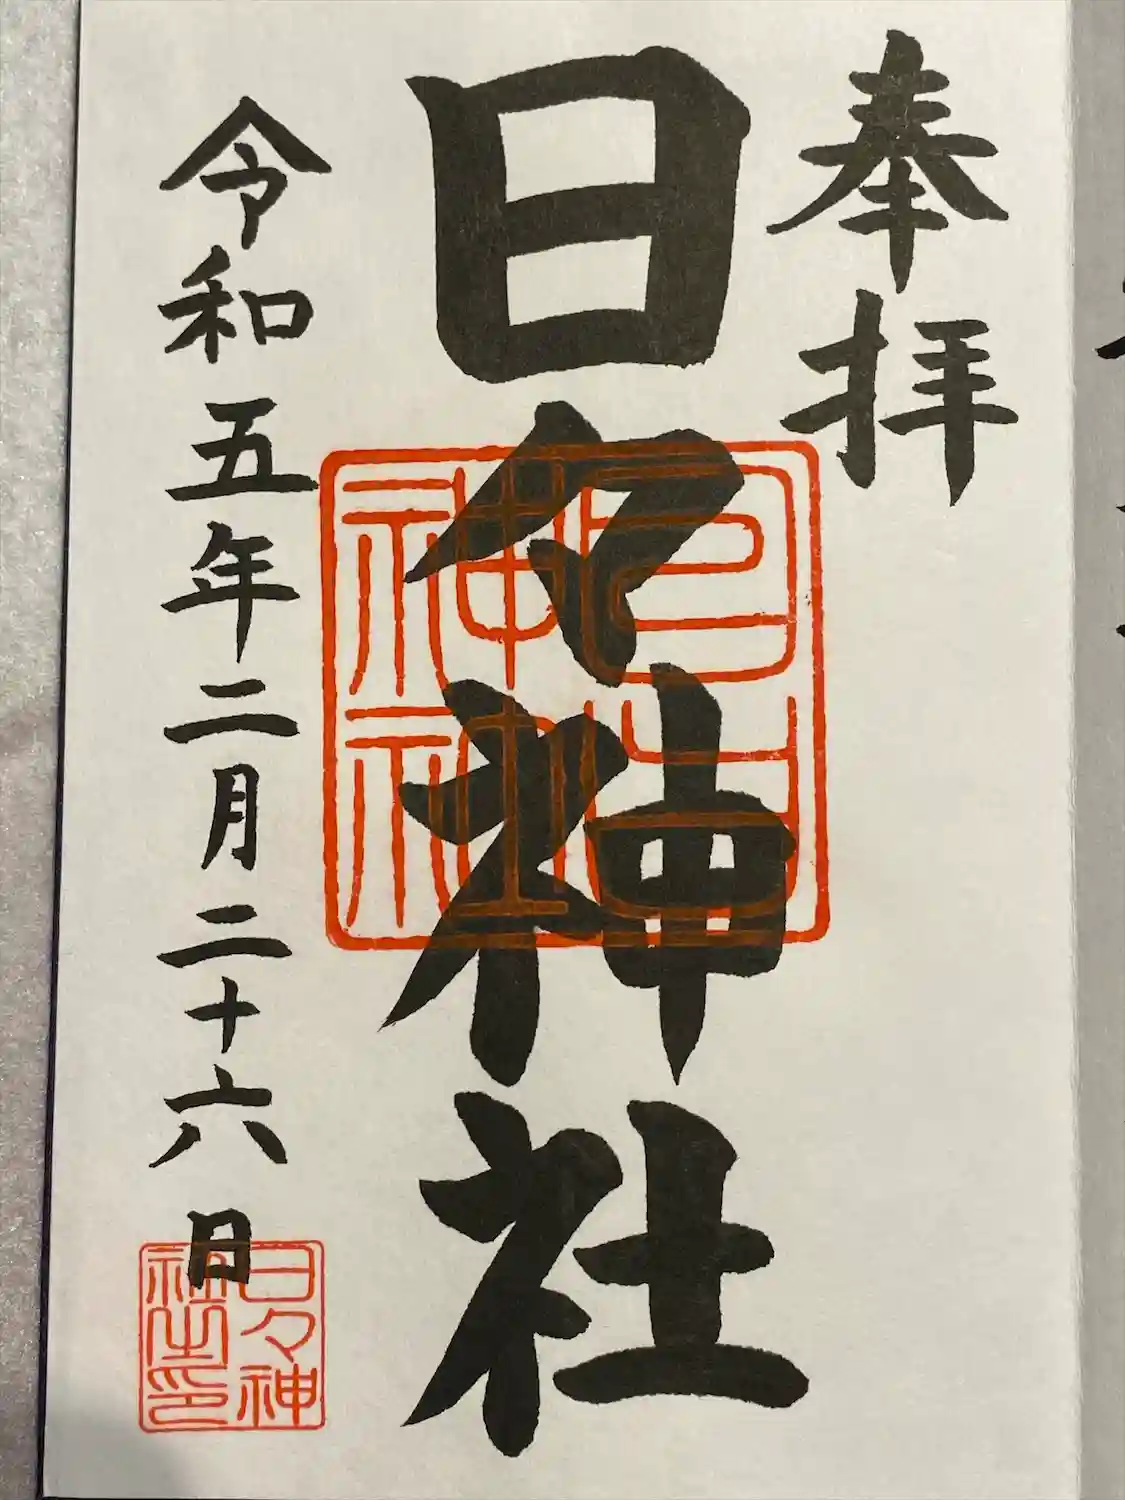 奉拝
日々神社
日日神社
令和五年二月二十六日
日々神
社之印